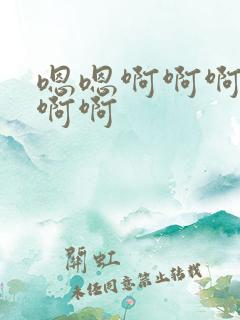 嗯嗯啊啊啊
啊啊
關虹
未经同意禁止转载